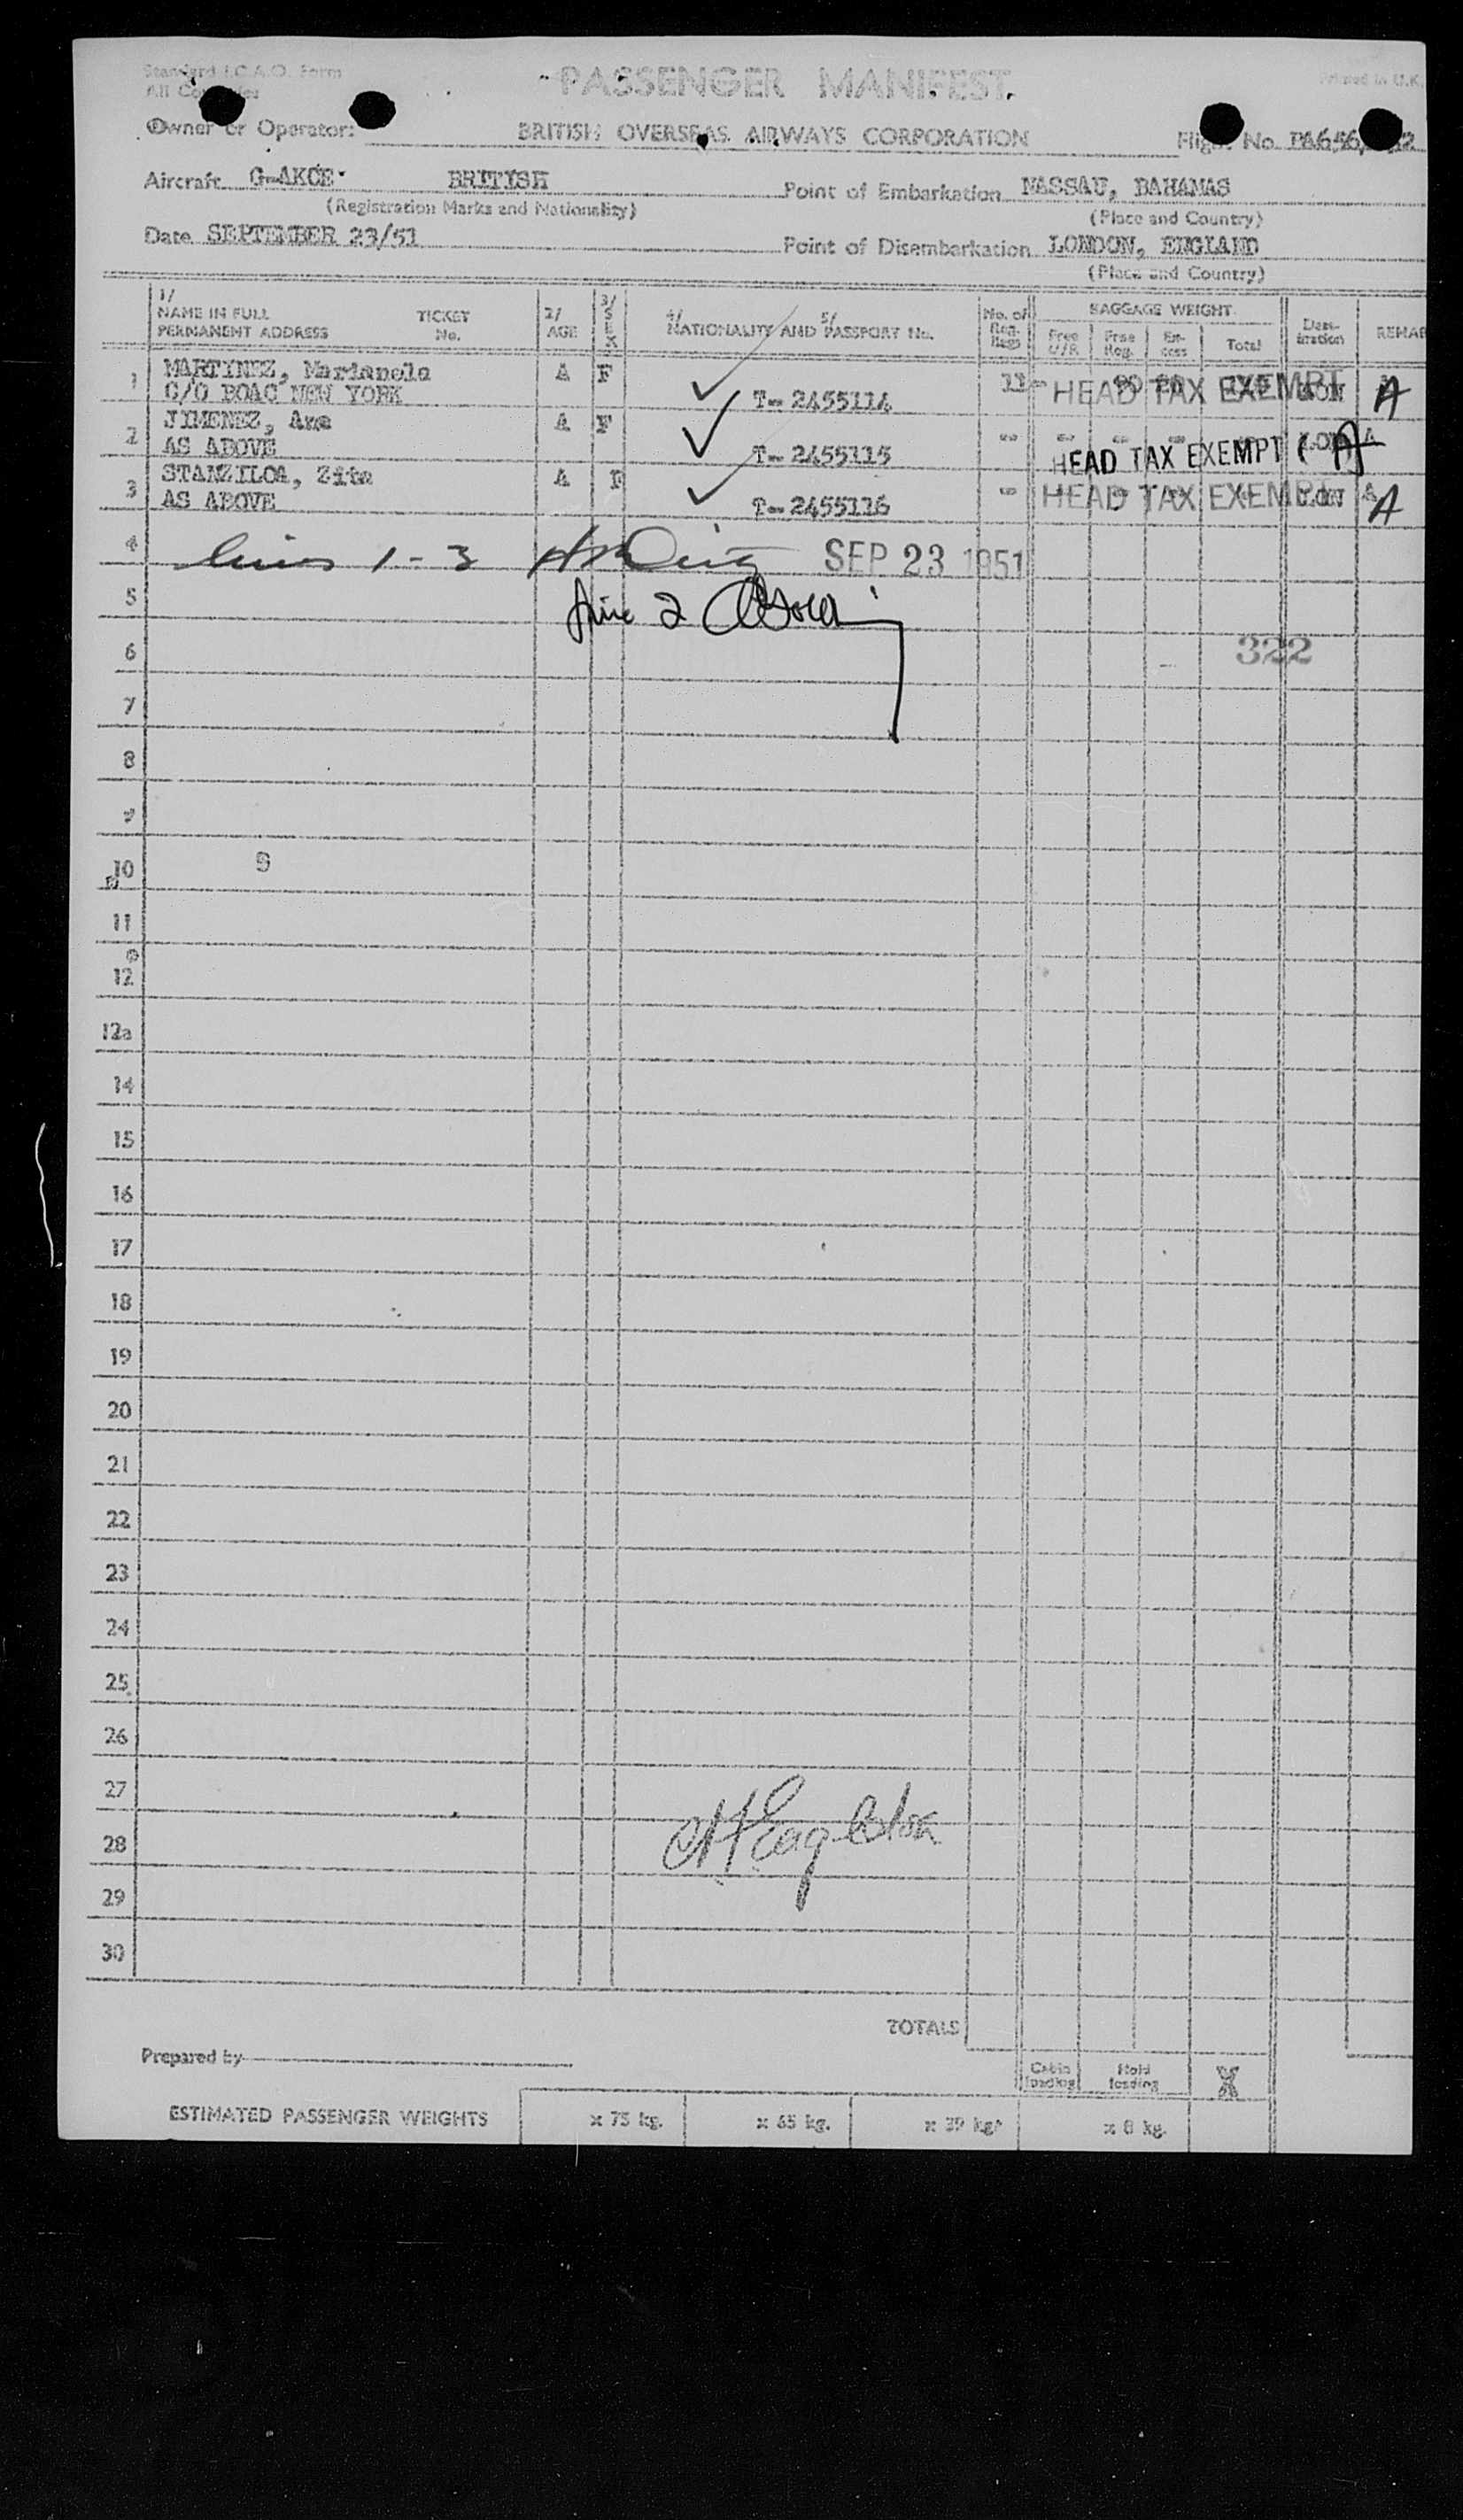 Standard I.C.A.O. Form
PASSENGER MANIFEST.
Printed in U.K.
All
Owner or Operator: BRITISH OVERSEAS AIRWAYS CORPORATION No.
Aircraft G-AKCE BRITISH Point of Embarkation NASSAU, BAHAMAS
(Registration Marks and Nationality) (Place and Country)
Date SEPTEMBER 23/51 Point of Disembarkation LONDON, ENGLAND
(Place and Country)
1/ NAME IN FULL TICKET 2/ 3/ SEX 4/ 5/ No. of BAGGAGE WEIGHT
PERMANENT ADDRESS No. AGE NATIONALITY AND PASSPORT No. Free Free Total REMAR
1 MARTINEZ, Marianela A F
C/O BOAC NEW YORK T- 2455114 11 HEAD TAX EXEMPT A
2 JIMENEZ, Ana A F
AS ABOVE T- 2455115 - HEAD TAX EXEMPT A
3 A F
AS ABOVE T- 2455116 - HEAD TAX EXEMPT LON A
4 lines 1-3 SEP 23 1951
5 line 2
6 322
7
8
9
10 9
11
12
12a
14
15
16
17
18
19
20
21
22
23
24
25
26
27
28
29
30
TOTALS
Prepared by
Cabin loading Hold loading X
ESTIMATED PASSENGER WEIGHTS x 75 kg. x 65 kg. x 39 kg. x 8 kg.